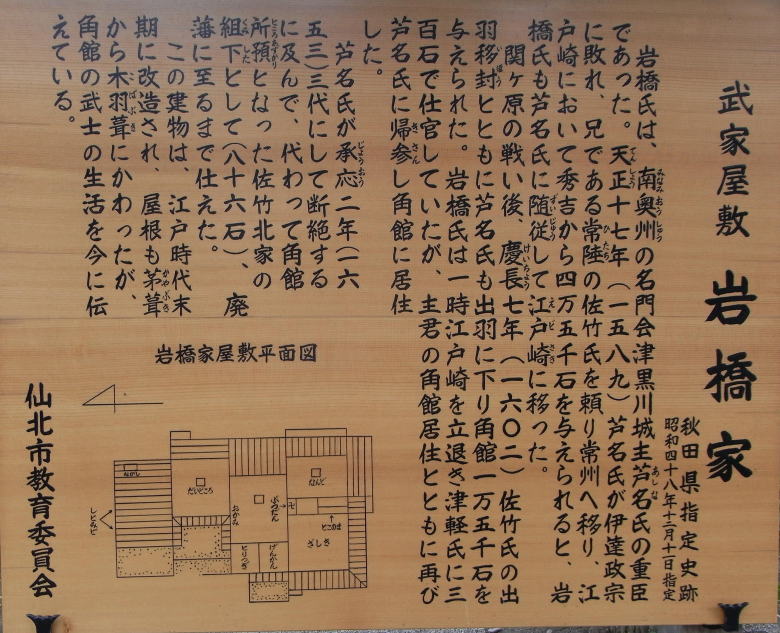 武家屋敷 岩橋家
秋田県指定史跡
昭和四十八年十二月十一日指定
岩橋氏は、南奥州の名門会津黒川城主芦名氏の重臣
であった。天正十七年（一五八九）芦名氏が伊達政宗
に敗れ、兄である常陸の佐竹氏を頼り常州へ移り、江
戸崎において秀吉から四万五千石を与えられると、岩
橋氏も芦名氏に随従して江戸崎に移った。
関ヶ原の戦い後、慶長七年（一六〇二）佐竹氏の出
羽移封とともに芦名氏も出羽に下り角館一万五千石を
与えられた。岩橋氏は一時江戸崎を立退き津軽氏に三
百石で仕官していたが、主君の角館居住とともに再び
芦名氏に帰参し角館に居住
した。
芦名氏が承応二年（一六
五三）三代にして断絶する
に及んで、代わって角館
所預となった佐竹北家の
組下として（八十六石）、廃
藩に至るまで仕えた。
この建物は、江戸時代末
期に改造され、屋根も茅葺
から木羽葺にかわったが、
角館の武士の生活を今に伝
えている。
岩橋家屋敷平面図
ながし
だいどころ
おかみ
なんど
ぶつだん
とこのま
ざしき
げんかん
とりつぎ
しとみど
仙北市教育委員会